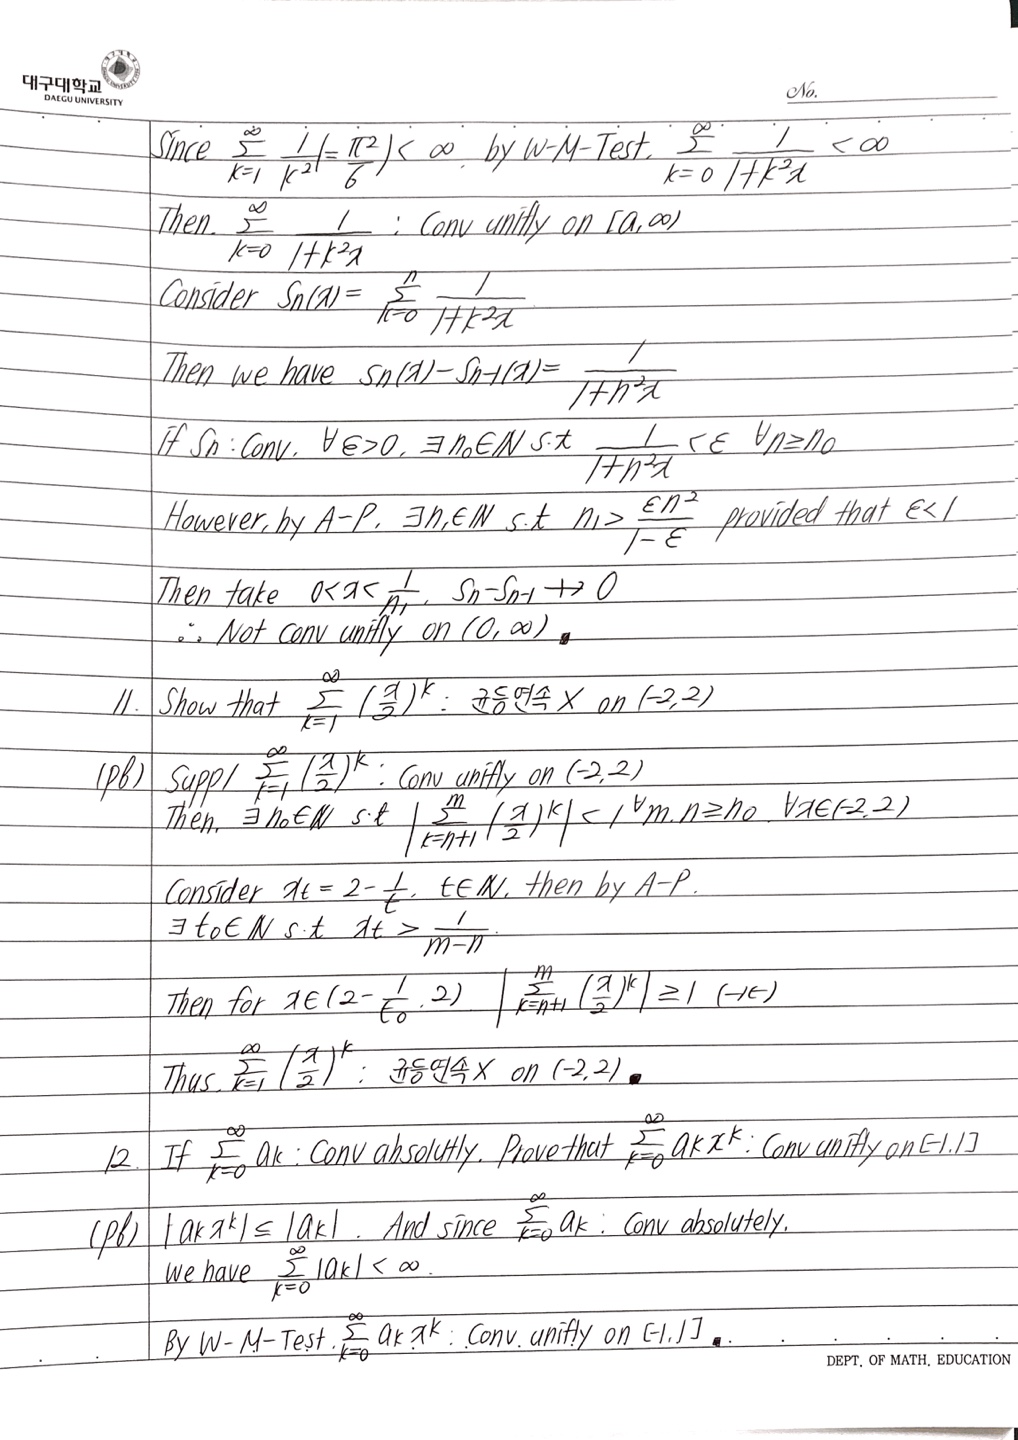 대구대학교
DAEGU UNIVERSITY
No.
Since ∞Σk=1 1/k² (= π²/6) < ∞. by W-M-Test. ∞Σk=0 1/(1+k²x) < ∞
Then. ∞Σk=0 1/(1+k²x) : Conv unifly on [a,∞)
Consider Sn(x) = nΣk=0 1/(1+k²x)
Then we have Sn(x) - Sn-1(x) = 1/(1+n²x)
If Sn : Conv. ∀ε>0. ∃n₀∈ℕ s.t 1/(1+n²x) < ε ∀n≥n₀
However, by A-P. ∃n₁∈ℕ s.t n₁ > εn²/(1-ε) provided that ε<1
Then take 0<x<1/n₁. Sn-Sn-1 ↛ 0
∴ Not conv unifly on (0,∞).
11. Show that ∞Σk=1 (x/2)^k : 균등연속 X on (-2,2)
(pf) Supp/ ∞Σk=1 (x/2)^k : Conv unifly on (-2,2)
Then. ∃n₀∈ℕ s.t |mΣk=n+1 (x/2)^k| < 1 ∀m.n≥n₀. ∀x∈(-2,2)
Consider xt = 2 - 1/t. t∈ℕ. then by A-P.
∃t₀∈ℕ s.t xt > 1/(m-n).
Then for x∈(2 - 1/t₀. 2) |mΣk=n+1 (x/2)^k| ≥ 1 (→←)
Thus. ∞Σk=1 (x/2)^k : 균등연속 X on (-2,2).
12. If ∞Σk=0 ak : Conv absolutly. Prove that ∞Σk=0 akx^k : Conv unifly on [-1.1]
(pf) |akx^k| ≤ |ak|. And since ∞Σk=0 ak : Conv absolutely.
we have ∞Σk=0 |ak| < ∞.
By W-M-Test. ∞Σk=0 akx^k : Conv. unifly on [-1.1].
DEPT. OF MATH. EDUCATION